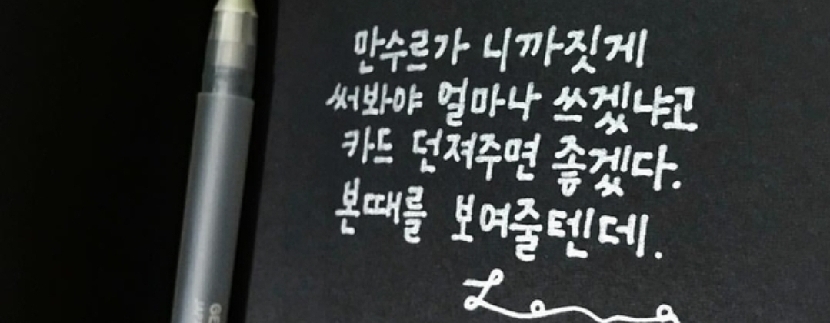 만수르가 니까짓게
써봐야 얼마나 쓰겠냐고
카드 던져주면 좋겠다.
본때를 보여줄텐데.